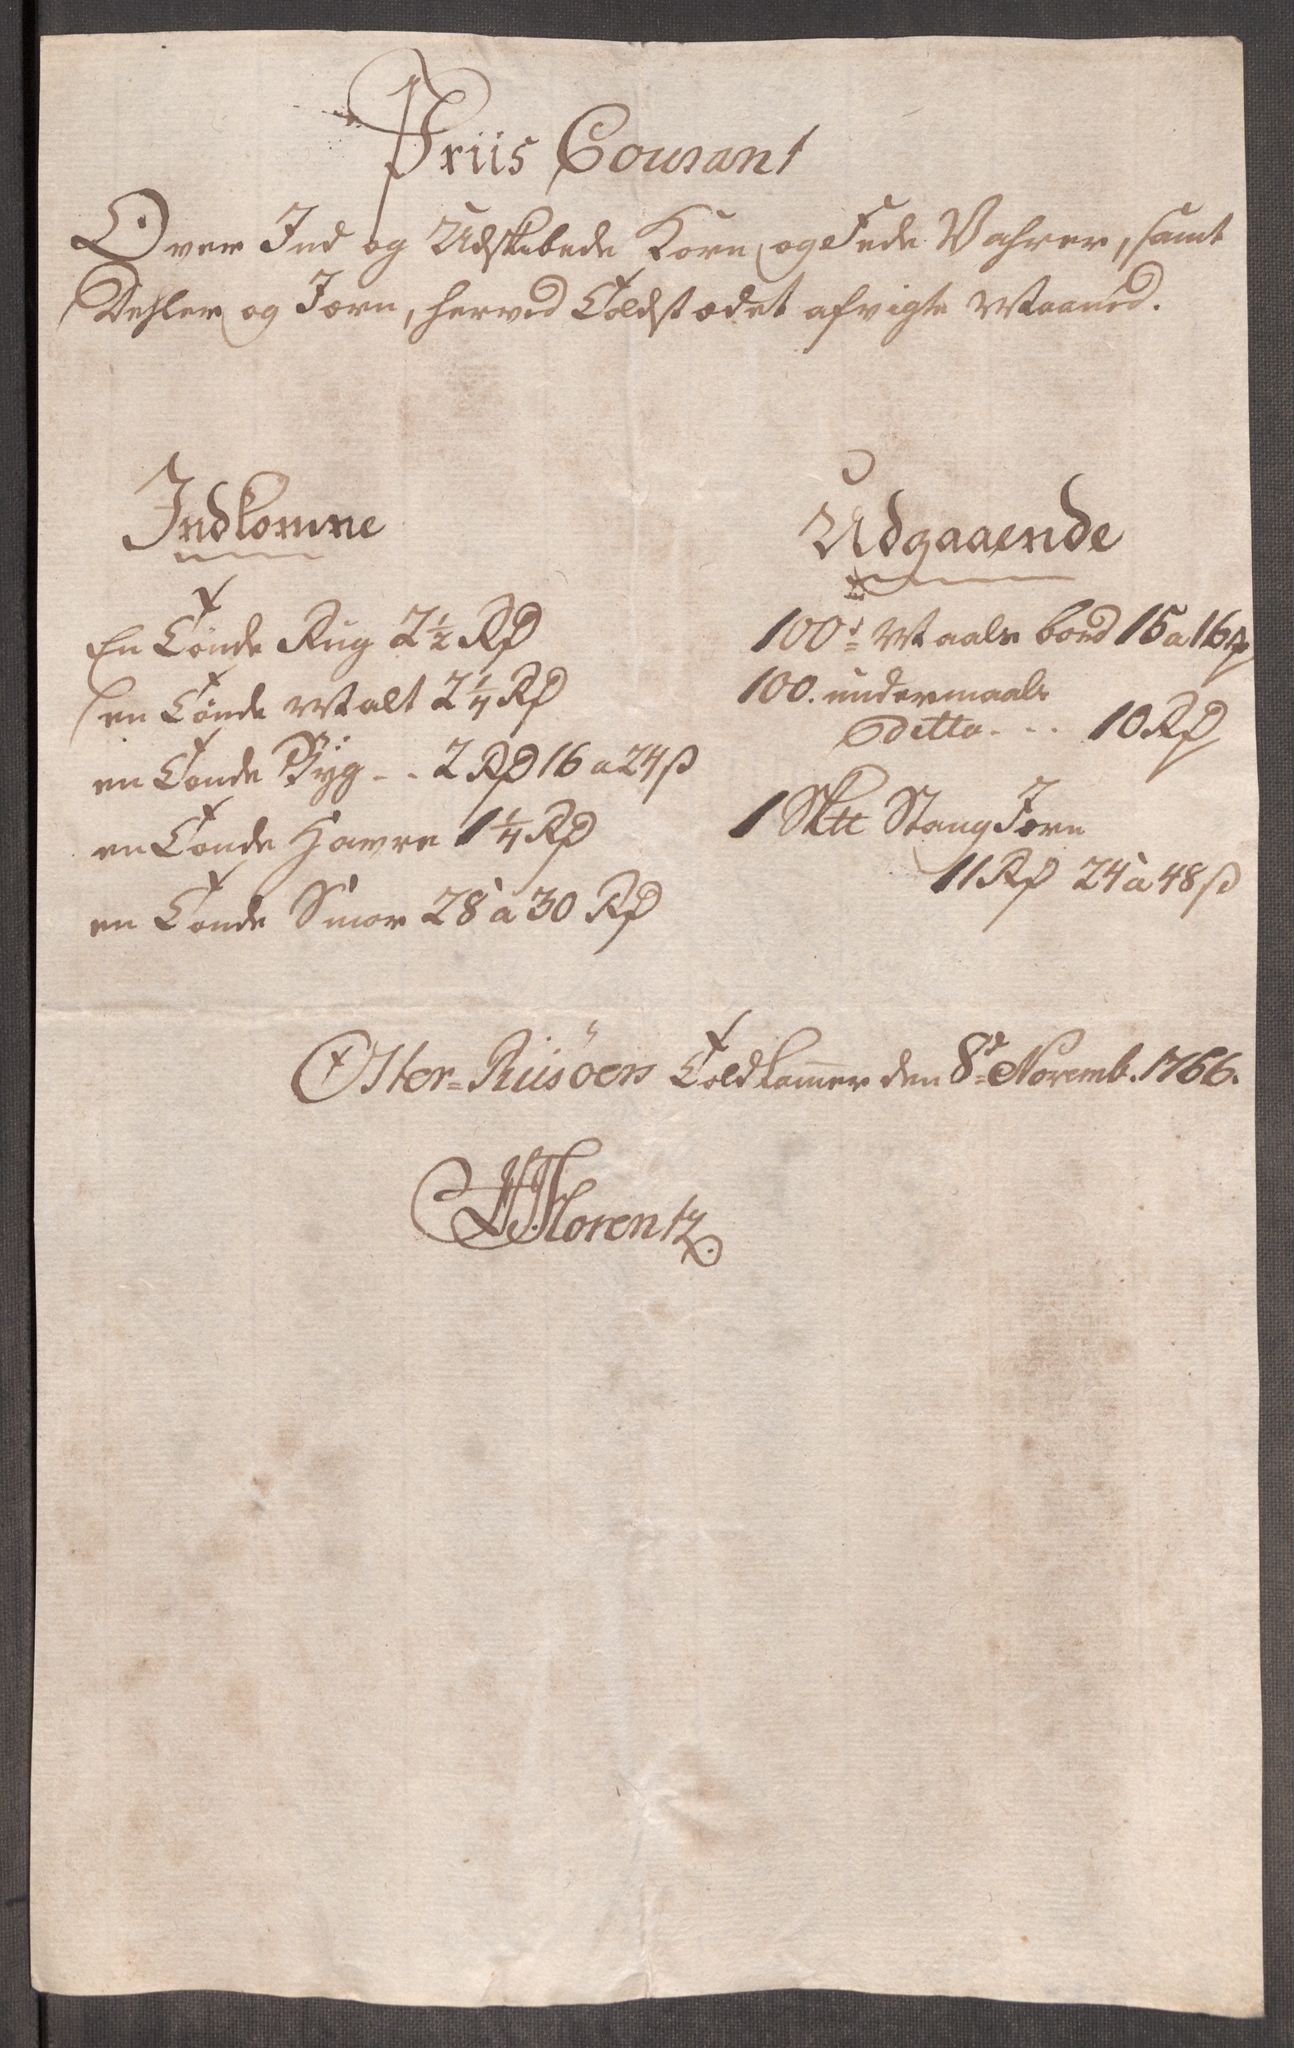 Priis Courant
Over Ind og Udskibede Korn og Fede Vahrer, samt
Dehler og Jern, herved Toldstædet afvigte Maaned.
Indkomne
En Tønde Rug 2 1/2 Rd
en Tønde Malt 2 1/4 Rd
en Tønde Byg - - 2 Rd 16 a 24 ß
en Tønde Havre 1 1/4 Rd
en Tønde Smör 28 à 30 Rd
Udgaaende
100d Maals bord 15 a 16 Rd
100. undermaals
ditto - - - 10 Rd
1 Sktt Stang Jern
11 Rd 24 à 48 ß
Oster-Riisöers Toldkammer den 8d Novemb. 1766.
Florentz